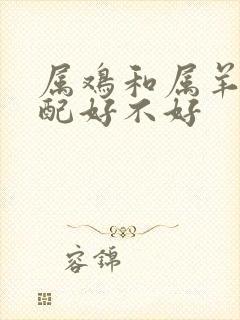 属鸡和属羊
配好不好
容锦